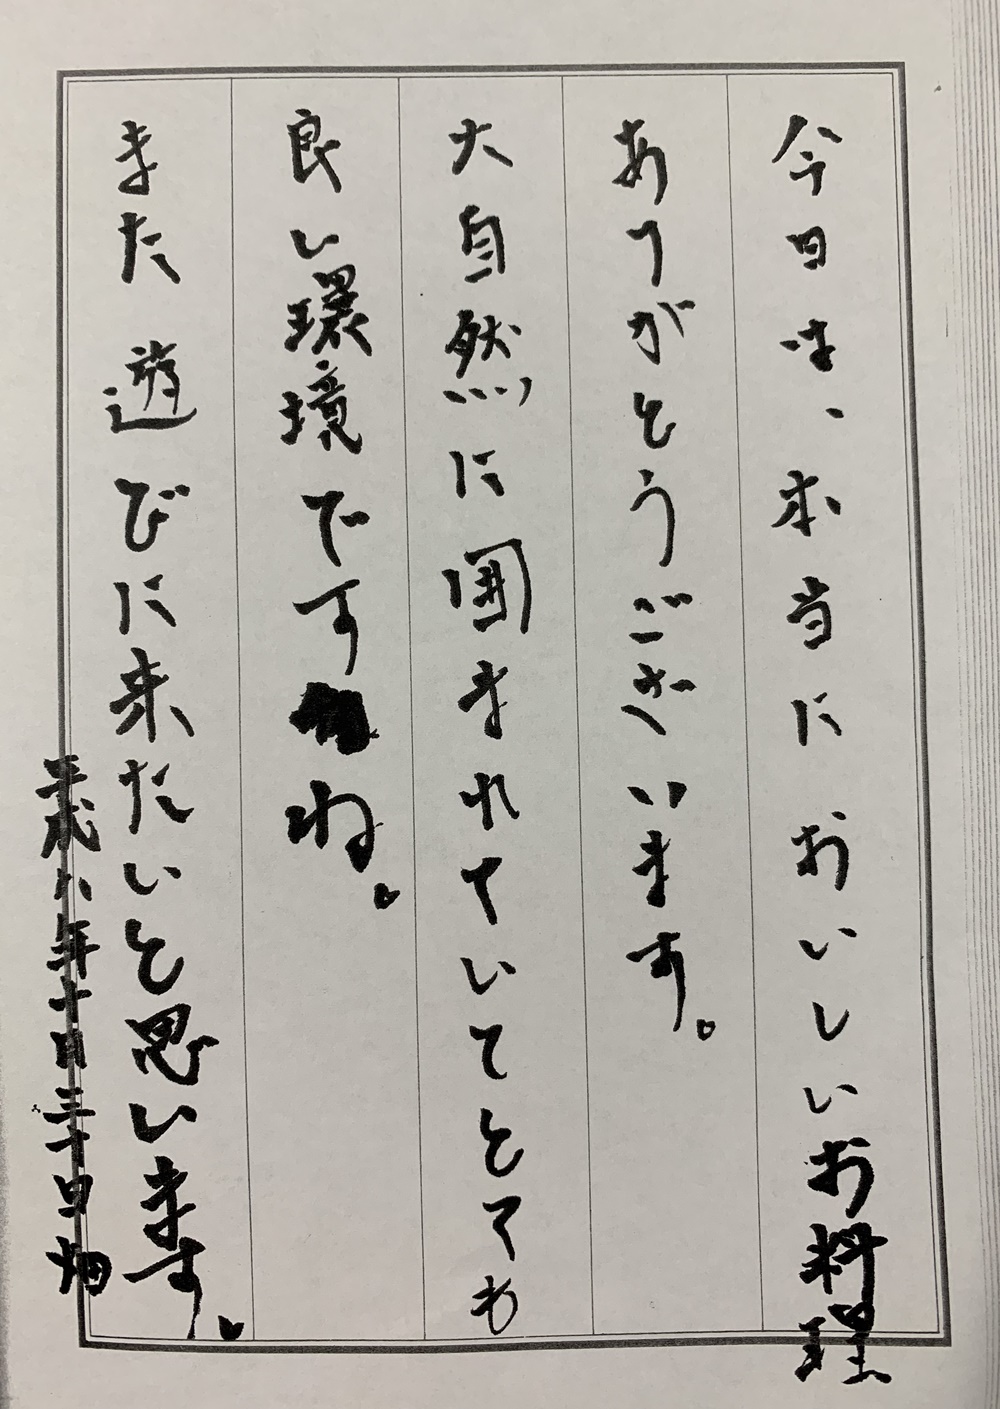 今日は、本当においしいお料理
ありがとうございます。
大自然に囲まれていてとても
良い環境ですね。
また遊びに来たいと思います。
平成八年十月三十日畑